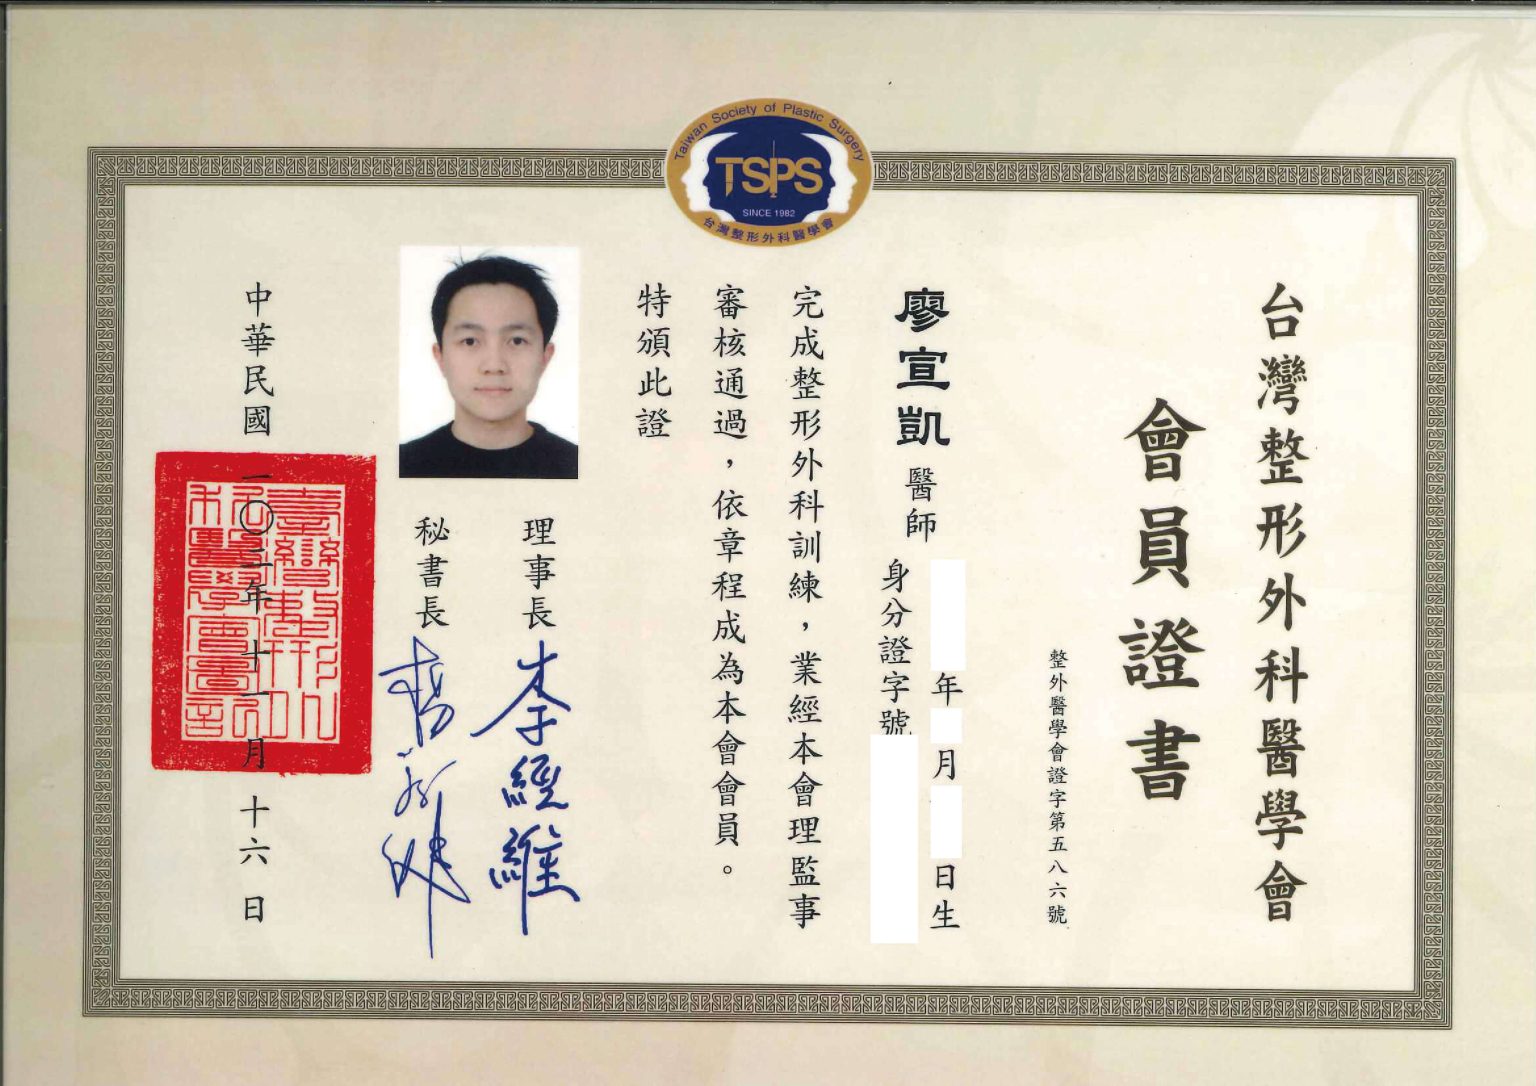 Taiwan Society of Plastic Surgery
TSPS
SINCE 1982
台灣整形外科醫學會
台灣整形外科醫學會
會員證書
整外醫學會證字第五八六號
廖宣凱 醫師
年 月 日生
身分證字號
完成整形外科訓練，業經本會理監事
審核通過，依章程成為本會會員。
特頒此證
理事長 李經維
秘書長
中華民國一〇三年十一月十六日
臺灣整形外科醫學會圖記